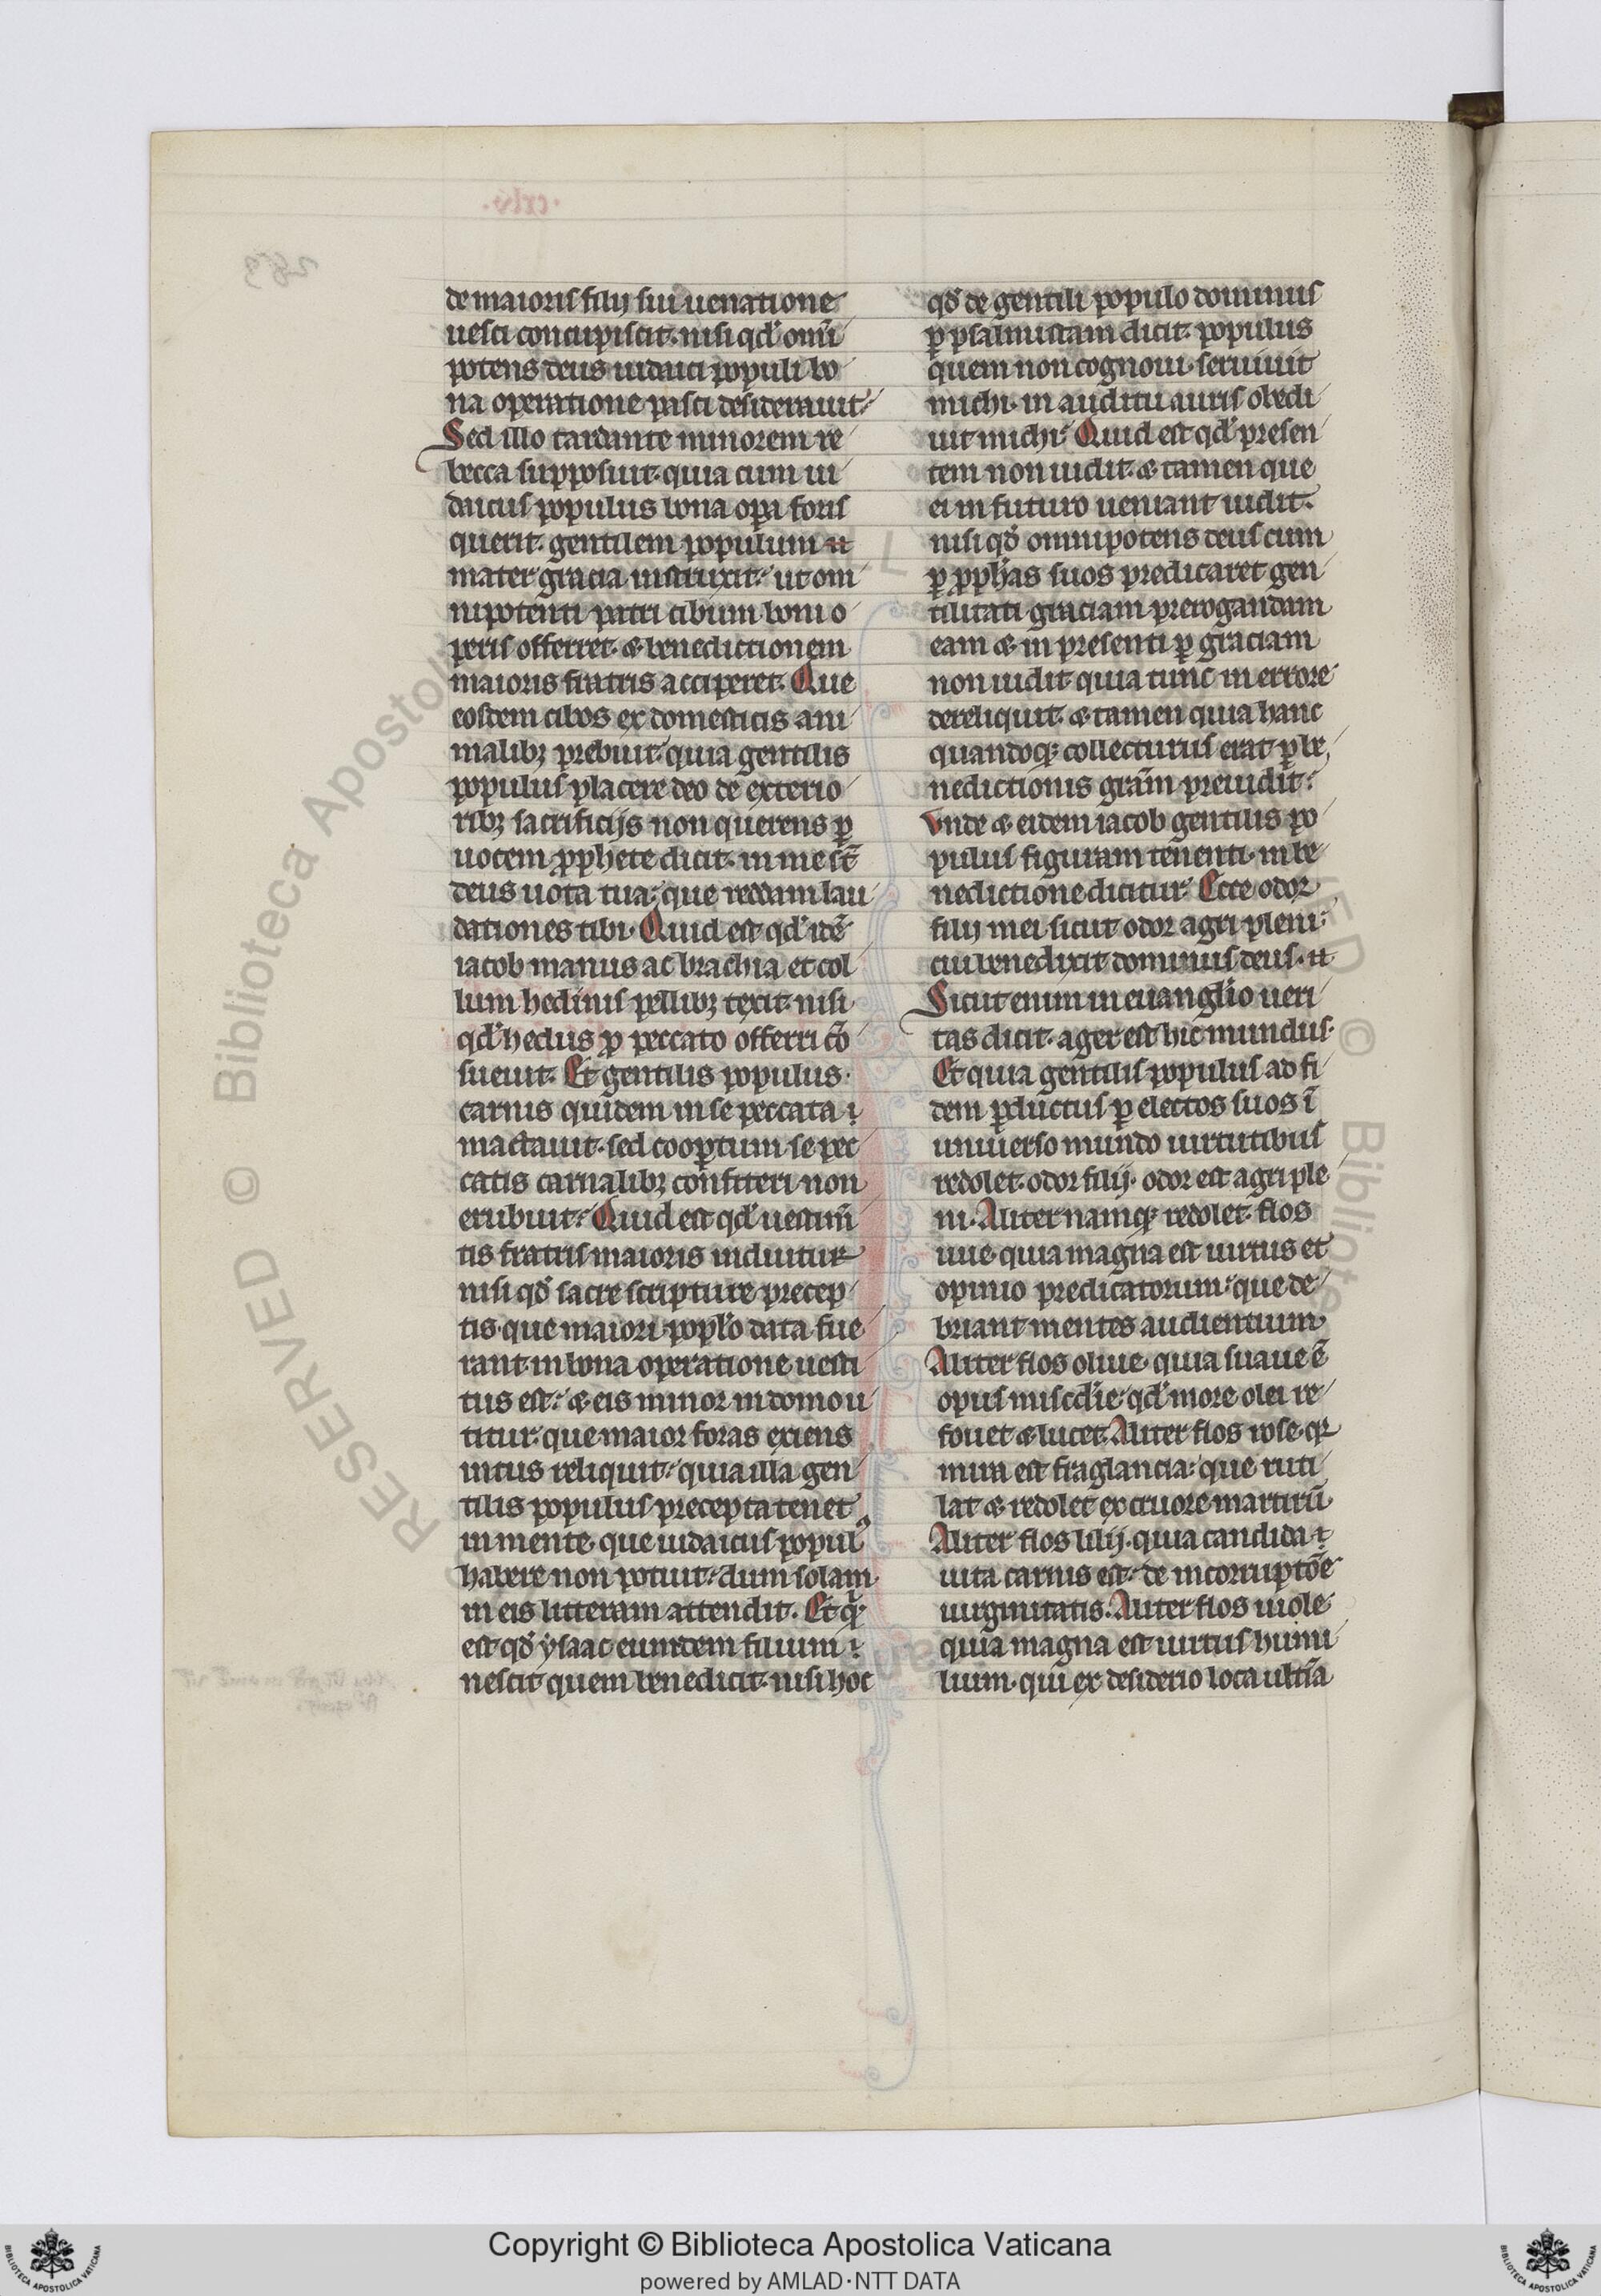 de maioris filij sui uenatione
uesci concupiscit. nisi qd' om̄i
potens deus iudaici populi bo
na operatione pasci desiderauit.
Sed illo tardante minorem re
becca supposuit. quia cum iu
daicus populus bona opa foris
querit. gentilem populum
mater gracia instruxit. ut om
nipotenti patri cibum boni o
peris offerret. & benedictionem
maioris fratris acciperet. Que
eosdem cibos ex domesticis ani
malibꝫ prebuit. quia gentilis
populus placere deo de exterio
ribꝫ sacrificijs non querens ꝑ
uocem ꝓphete dicit. in me st̄
deus uota tua. que reddam lau
dationes tibi. Quid est qd' idē
iacob manus ac brachia et col
lum hedinis pellibꝫ texit. nisi
qd' hedus ꝓ peccato offerri cō
sueuit. Et gentilis populus.
carnis quidem in se peccata
mactauit. sed cooꝑtum se pec
catis carnalibꝫ confiteri non
erubuit. Quid est qd' uestim̄
tis fratris maioris induitur
nisi qd' sacre scripture precep
tis. que maiori popl'o data fue
rant. in bona operatione uesti
tus est. & eis minor in domo u
titur. que maior foras exiens
intus reliquit. quia illa gen
tilis populus precepta tenet
in mente. que iudaicus popul'
habere non potuit. dum solam
in eis litteram attendit. Et q'
est qd' ysaac eumdem filium
nescit quem benedicit. nisi hoc
qd' de gentili populo dominus
ꝑ psalmistam dicit. populus
quem non cognoui. seruiuit
michi. in auditu auris obedi
uit michi. Quid est qd' presen
tem non uidit. & tamen que
ei in futuro ueniant uidit.
nisi qd' omnipotens deus cum
ꝑ ꝓph'as suos predicaret gen
tilitati graciam prerogandam
eam & in presenti ꝑ graciam
non uidit quia tunc in errore
dereliquit. & tamen quia hanc
quandoqꝫ collecturus erat ꝑ be
nedictionis gr̄am preuidit.
Vnde & eidem iacob gentilis po
pulus figuram tenenti. in be
nedictione dicitur. Ecce odor
filij mei sicut odor agri pleni.
cui benedixit dominus deus.
Sicut enim in euangl'io ueri
tas dicit. ager est hic mundus.
Et quia gentilis populus ad fi
dem ꝑductus ꝑ electos suos ī
uniuerso mundo uirtutibus
redolet. odor filij. odor est agri ple
ni. Aliter namqꝫ redolet. flos
uue. quia magna est uirtus et
opinio predicatorum. que de
briant mentes audientium
Aliter flos oliue. quia suaue ē
opus misc'die. qd' more olei re
fouet & lucet. Aliter flos rose. qr
mira est fraglancia. que ruti
lat & redolet ex cruore martirū
Aliter flos lilij. quia candida
uita carnis est. de incorruptōe
uirginitatis. Aliter flos uiole
quia magna est uirtus humi
lium. qui ex desiderio loca ultīa
RESERVED © Biblioteca Apostoli
VED © Bibliote
Copyright © Biblioteca Apostolica Vaticana
powered by AMLAD·NTT DATA
BIBLIOTECA APOSTOLICA VATICANA
BIBLIOTECA APOSTOLICA VATICANA